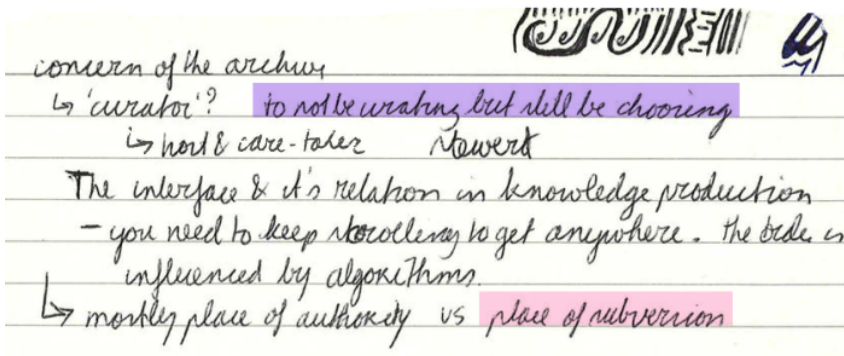 concern of the archive
↳ 'curator'? to not be curating but still be choosing
↳ host & care-taker steward
The interface & it's relation in knowledge production
– you need to keep scrolling to get anywhere. the order is
influenced by algorithms.
↳ mostly place of authority vs place of subversion